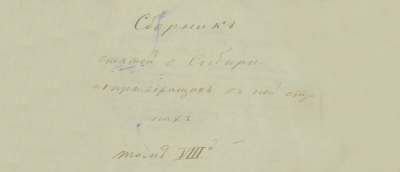 Сборникъ
статей о Сибири
и прилежащихъ къ ней стра
нахъ
томъ VIIIй